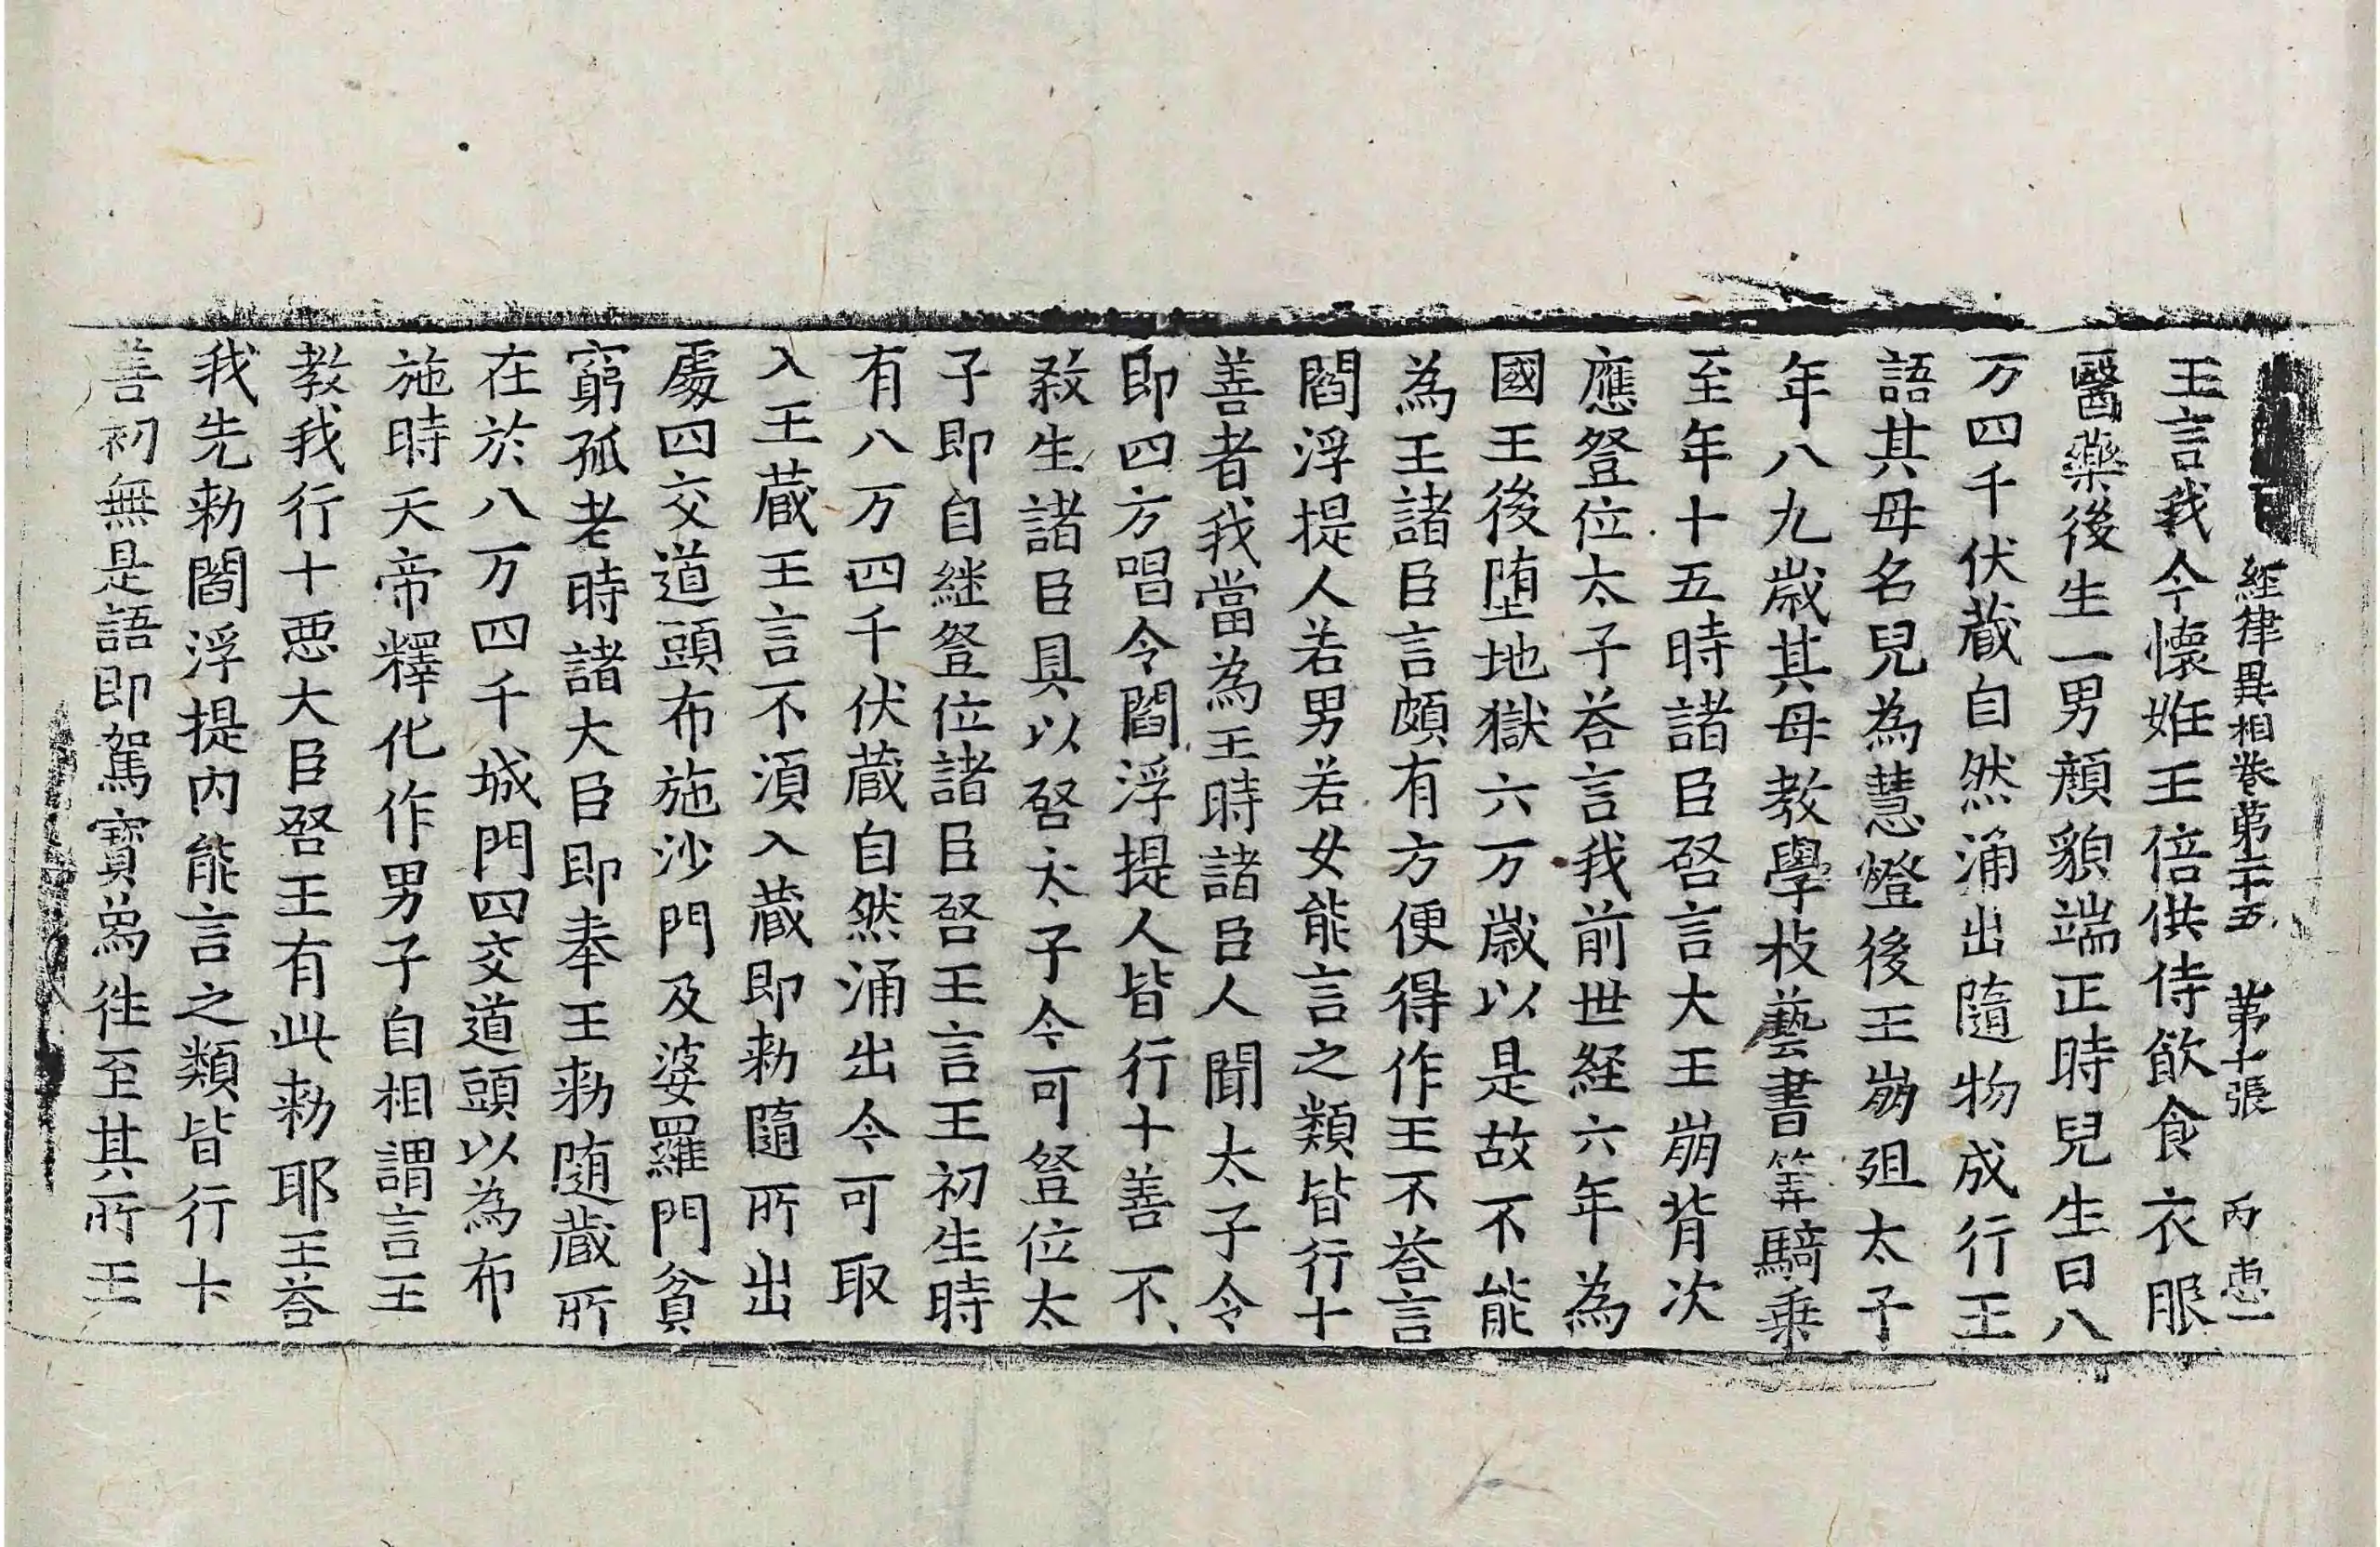 経律異相卷第二十五 第十張 丙 恵一
王言我今懷姙王倍供侍飲食衣服
醫藥後生一男顔貌端正時兒生日八
万四千伏蔵自然涌出隨物成行王
語其母名兒為慧燈後王崩殂太子
年八九歲其母教學枝藝書筭騎乗
至年十五時諸臣啓言大王崩背次
應登位太子荅言我前世経六年為
國王後堕地獄六万歲以是故不能
為王諸臣言頗有方便得作王不荅言
閻浮提人若男若女能言之類皆行十
善者我當為王時諸臣人聞太子令
即四方唱令閻浮提人皆行十善不
敘生諸臣具以啓太子今可登位太
子即自継登位諸臣啓王言王初生時
有八万四千伏蔵自然涌出今可取
入王蔵王言不湏入蔵即勑隨所出
處四交道頭布施沙門及婆羅門貧
窮孤老時諸大臣即奉王勑随蔵所
在於八万四千城門四交道頭以為布
施時天帝釋化作男子自相謂言王
教我行十悪大臣啓王有此勑耶王荅
我先勑閻浮提内能言之類皆行十
善初無是語即駕寳為徃至其所王